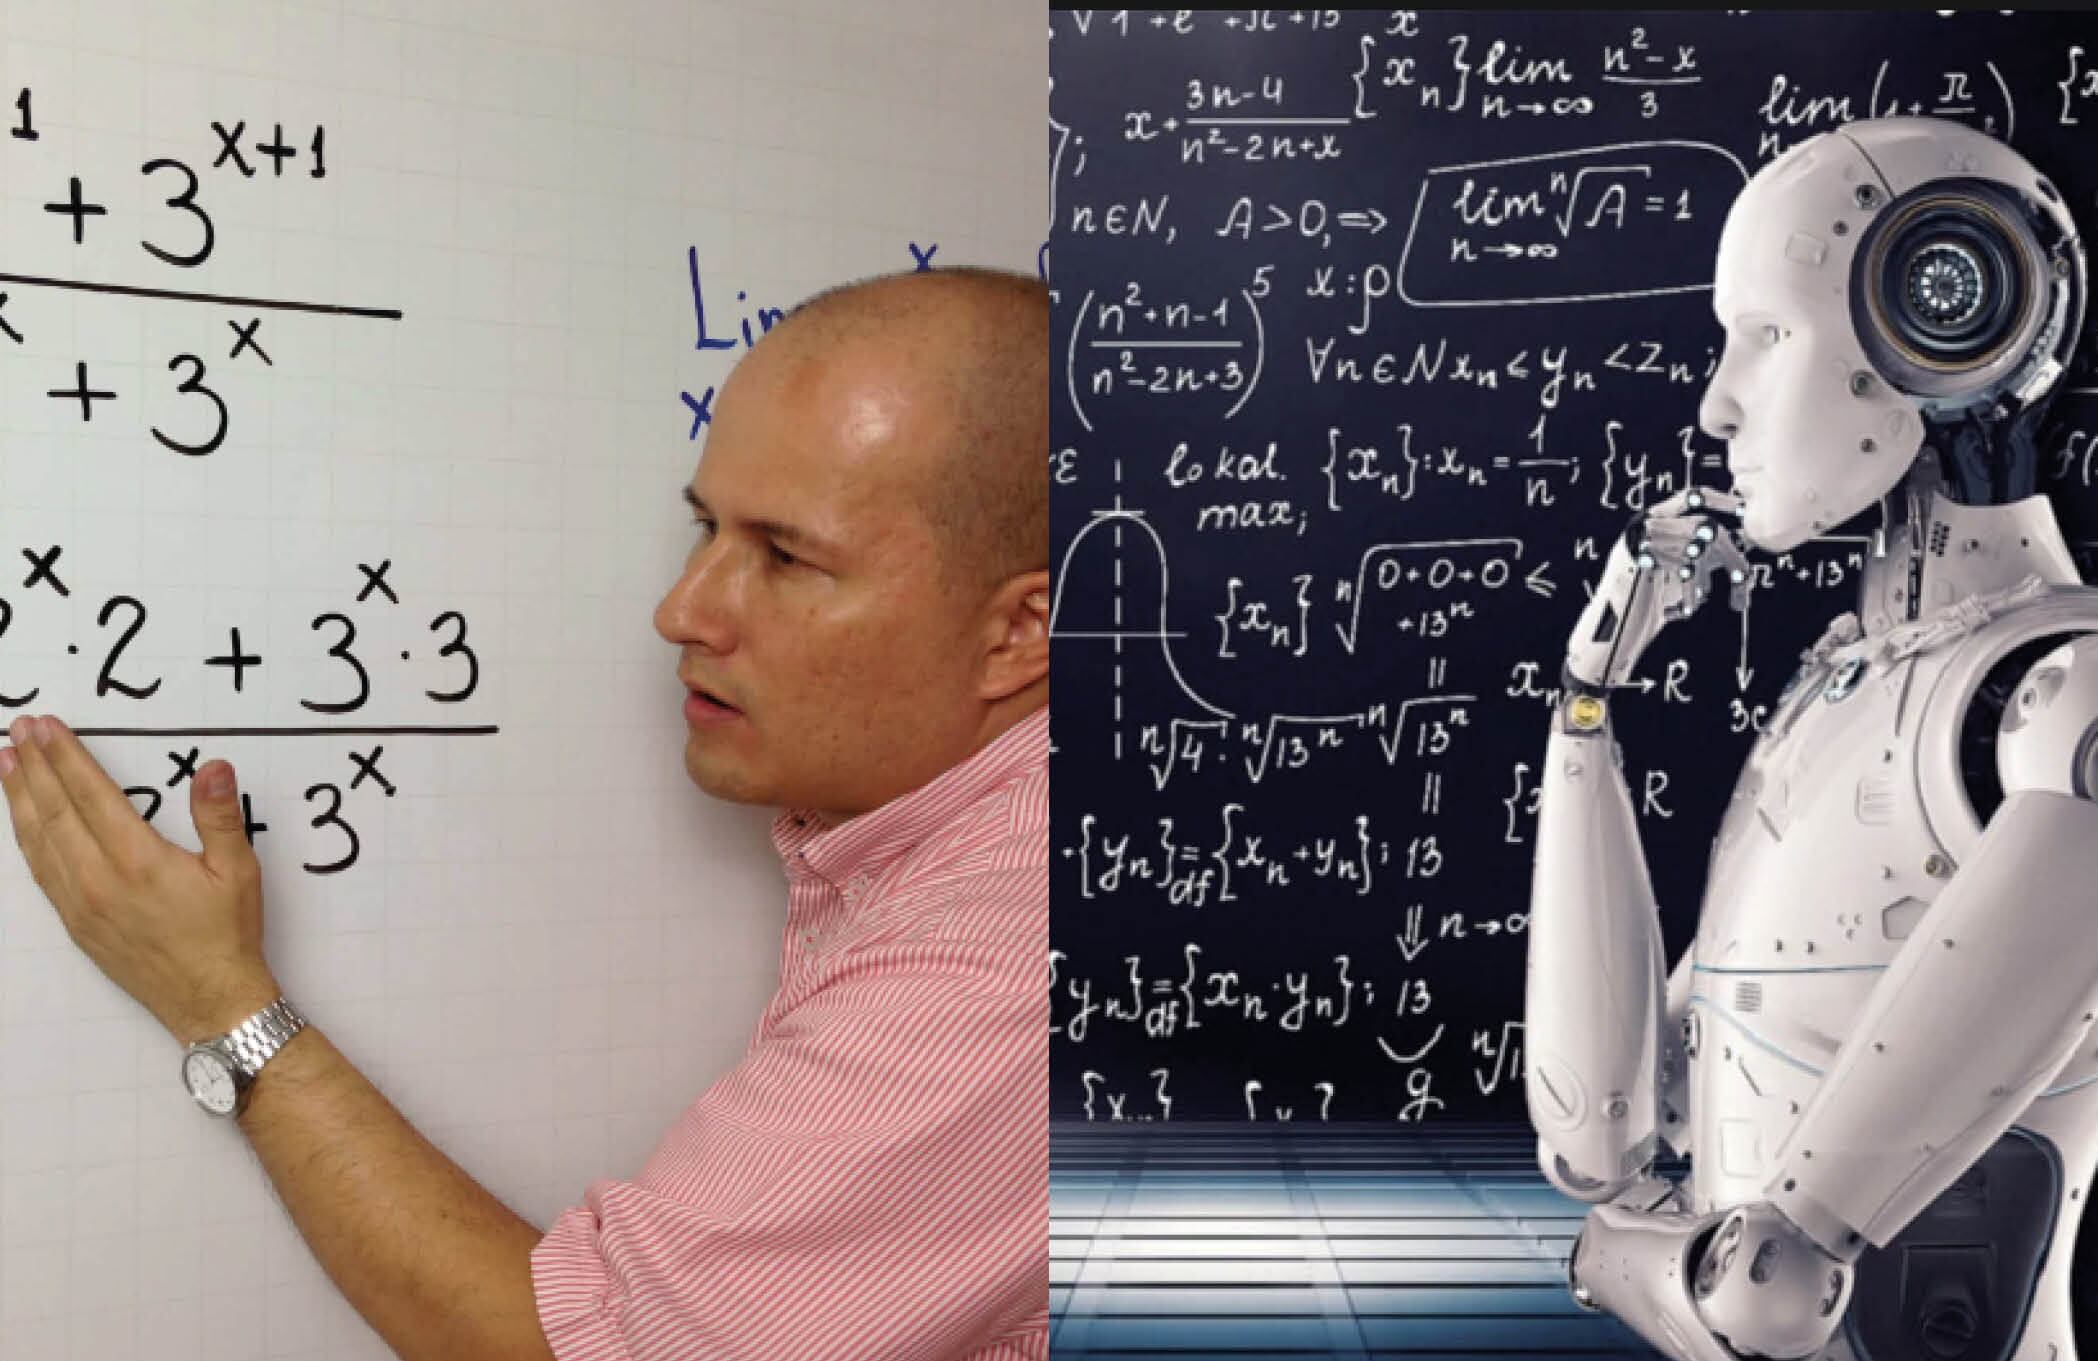 1 + 3^{x+1}
x + 3^x
Lim x
x
2^x · 2 + 3^x · 3
2^x + 3^x
√1 + e + π + 13 x
; x + \frac{3n-4}{n²-2n+x} {x_n} lim_{n→∞} \frac{n²-x}{3}
lim_n (1 + \frac{π}{}) {x
n∈N, A>0, ⇒ lim_{n→∞} ⁿ√A = 1
(\frac{n²+n-1}{n²-2n+3})⁵ x:ρ
∀n∈N x_n ≤ y_n < z_n;
ε lokal. max; {x_n}: x_n = \frac{1}{n}; {y_n} = f(
{x_n} ⁿ√(0+0+0+13ⁿ) ≤ ⁿ√ πⁿ+13ⁿ
||
x_n → R
ⁿ√4 · ⁿ√13ⁿ ⁿ√13ⁿ
||
{x R
·{y_n} =_{df} {x_n + y_n}; 13
⇓ n→∞
{y_n} =_{df} {x_n · y_n}; 13
g ⁿ√1